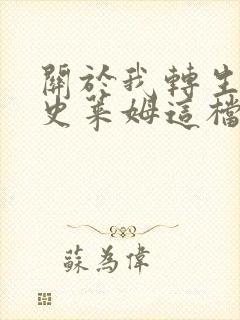 關於我轉生
史萊姆這檔
蘇為偉